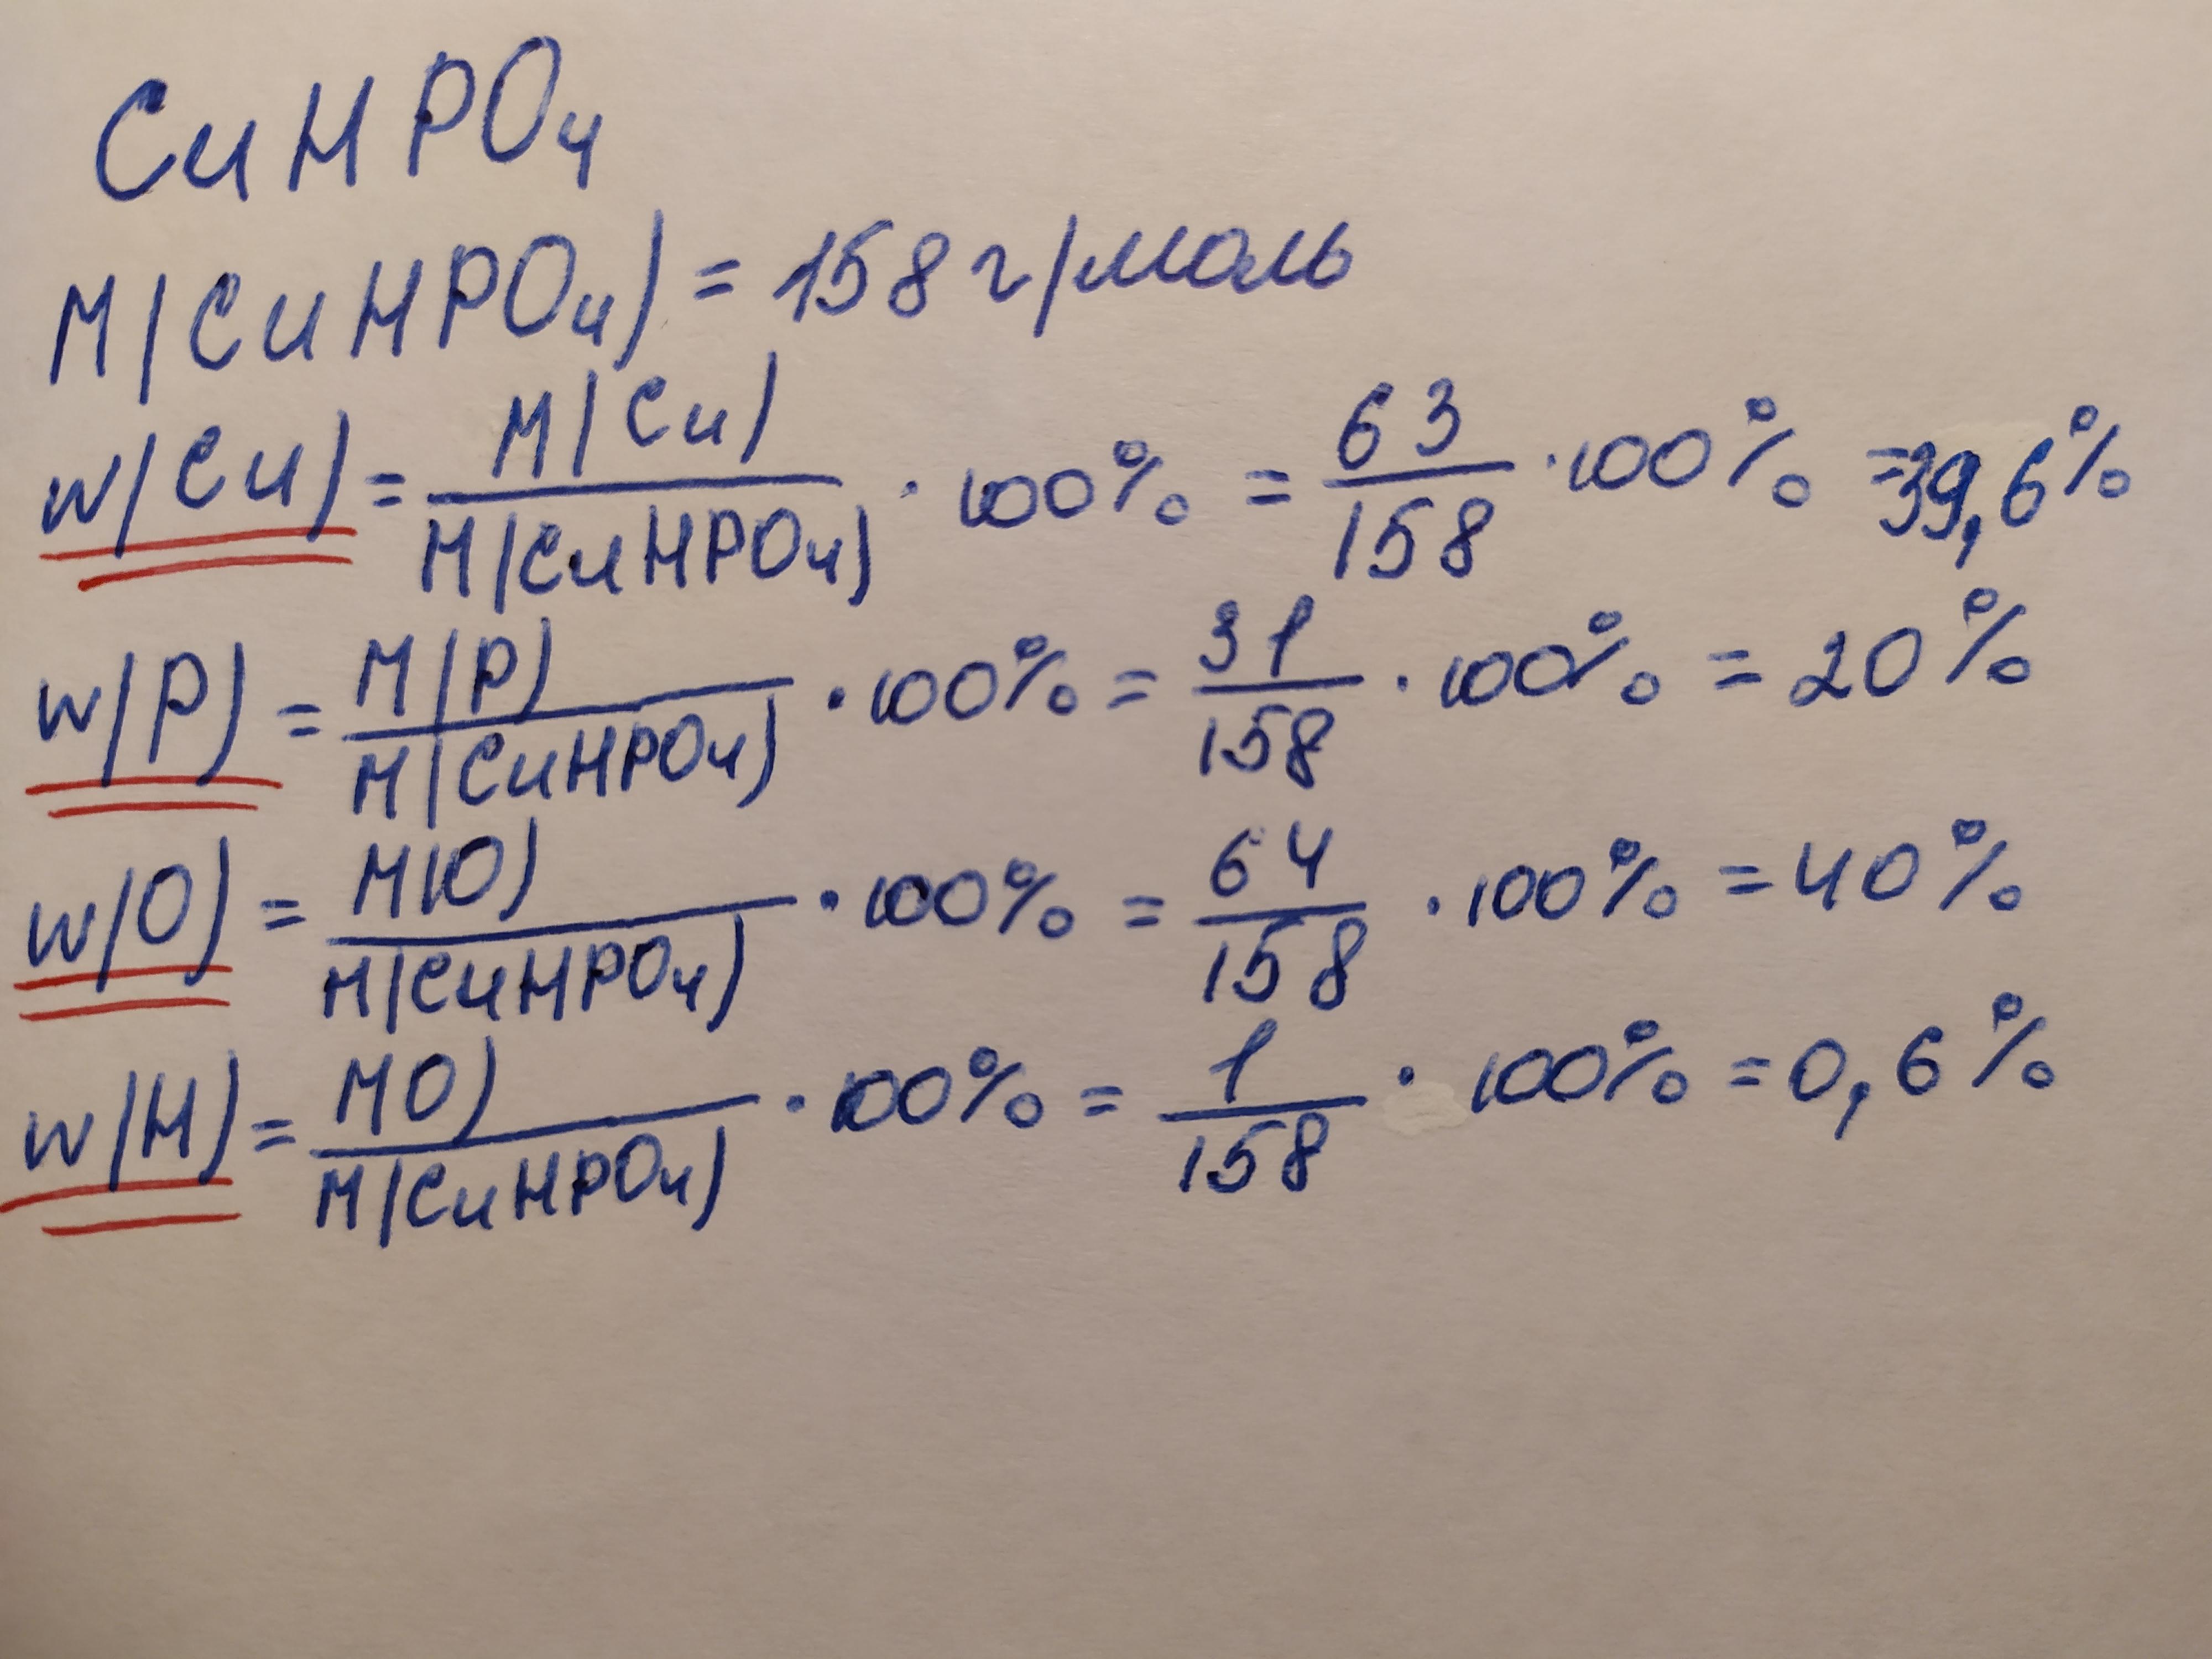 CuHPO₄
M(CuHPO₄) = 158 г/моль
w(Cu) = M(Cu) / M(CuHPO₄) · 100% = 63 / 158 · 100% = 39,6%
w(P) = M(P) / M(CuHPO₄) · 100% = 31 / 158 · 100% = 20%
w(O) = M(O) / M(CuHPO₄) · 100% = 64 / 158 · 100% = 40%
w(H) = MO) / M(CuHPO₄) · 100% = 1 / 158 · 100% = 0,6%